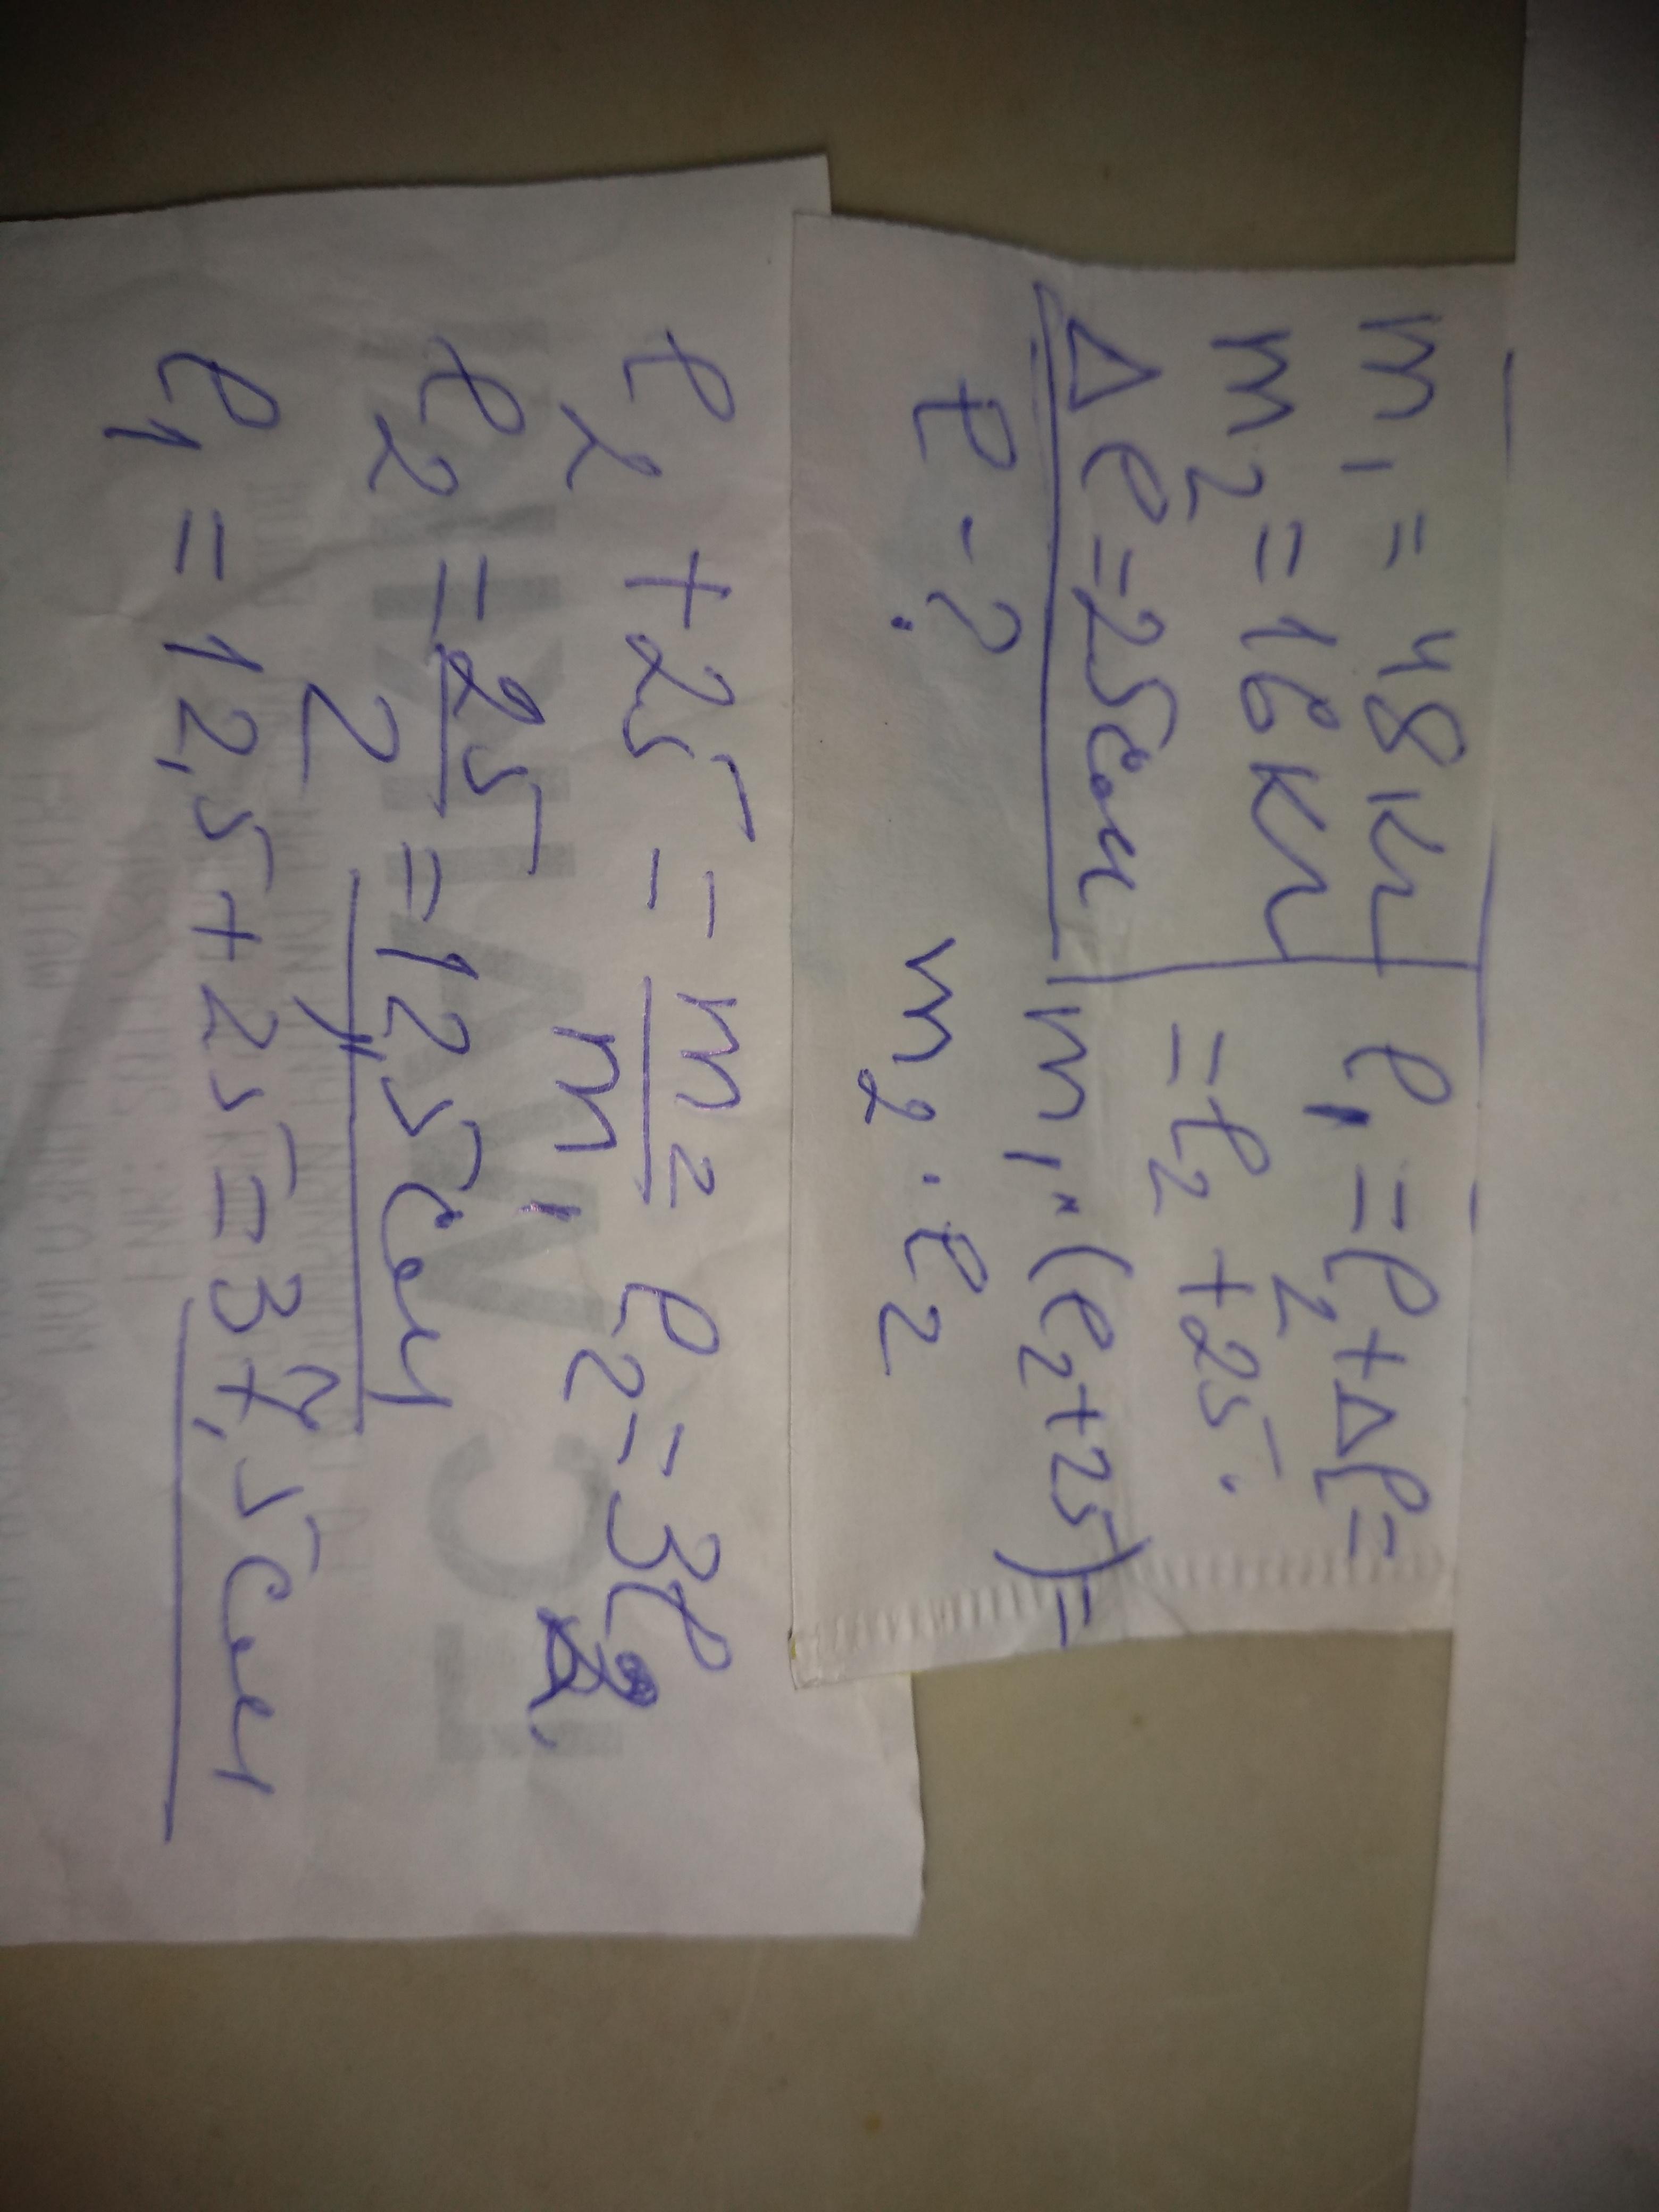 m₁ = 48 кг
m₂ = 16 кг
Δℓ = 25 см
ℓ - ?
ℓ₁ = ℓ₂ + Δℓ =
= ℓ₂ + 25.
m₁ · (ℓ₂ + 25) =
m₂ · ℓ₂
ℓ₂ + 25 = m₂/m₁ ℓ₂ = 3ℓ₂
ℓ₂ = 25/2 = 12,5 см
ℓ₁ = 12,5 + 25 = 37,5 см